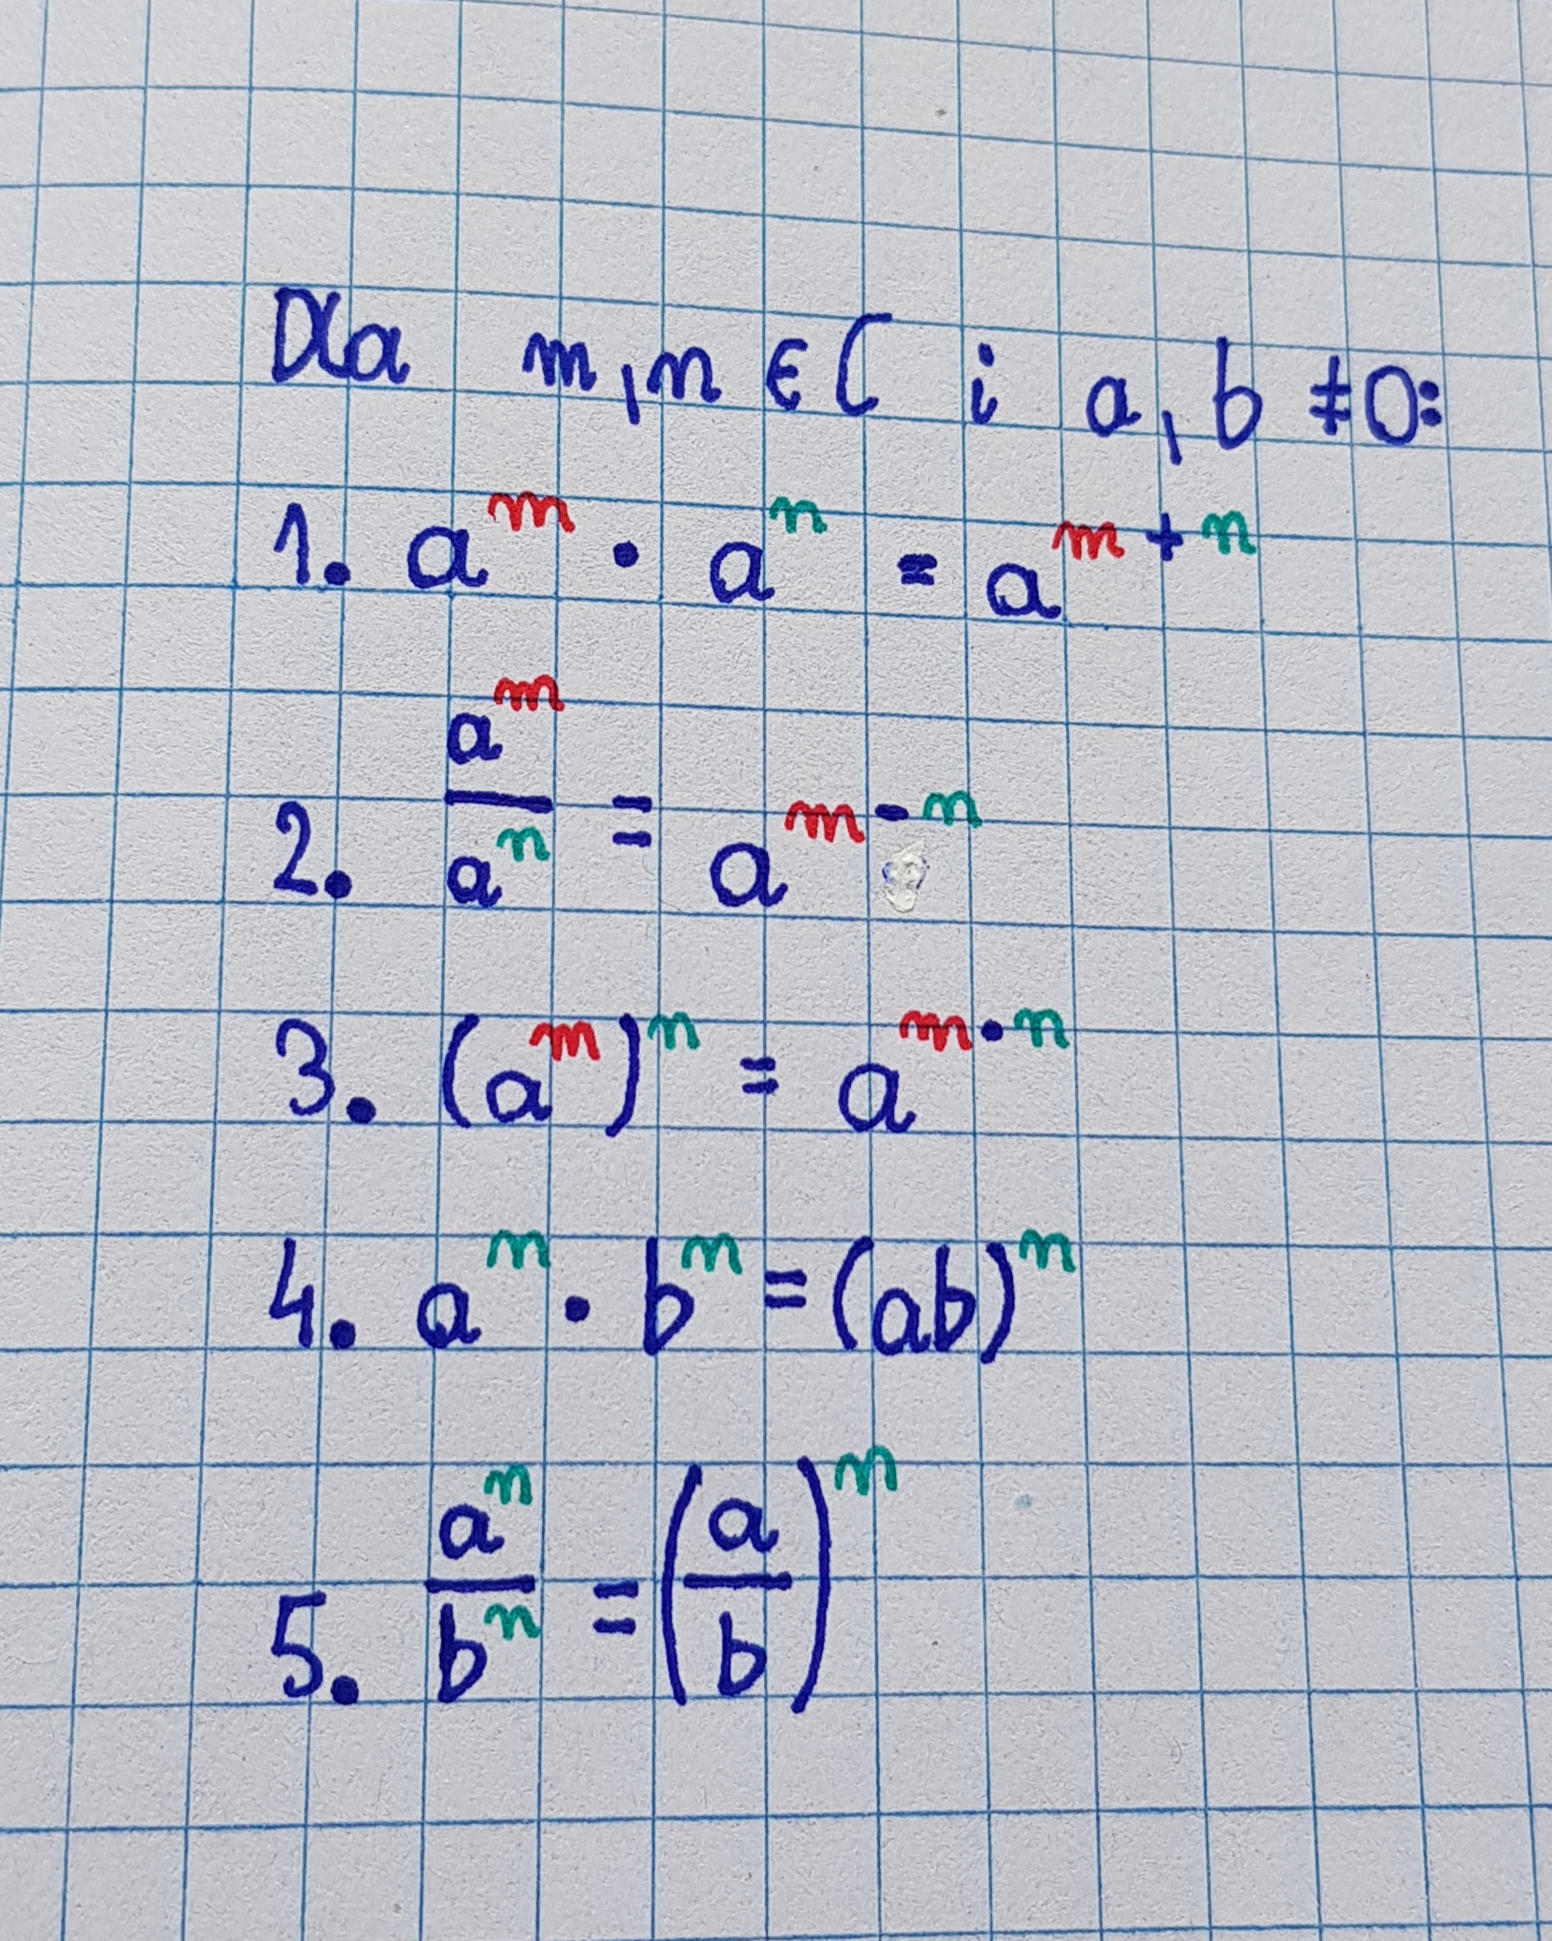 Dla m, n ∈ C i a, b ≠ 0:
1. a^m · a^n = a^(m+n)
2. a^m / a^n = a^(m-n)
3. (a^m)^n = a^(m·n)
4. a^n · b^n = (ab)^n
5. a^n / b^n = (a/b)^n